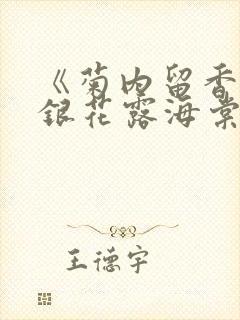 《菊内留香
銀花露海棠
王德宇